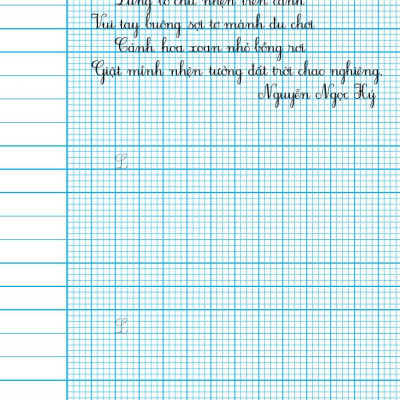 nhện trên cành
Vui tay buông sợi tơ mành đu chơi
Cánh hoa xoan nhỏ bỗng rơi
Giật mình nhện tưởng đất trời chao nghiêng.
Nguyễn Ngọc Ký
L
L